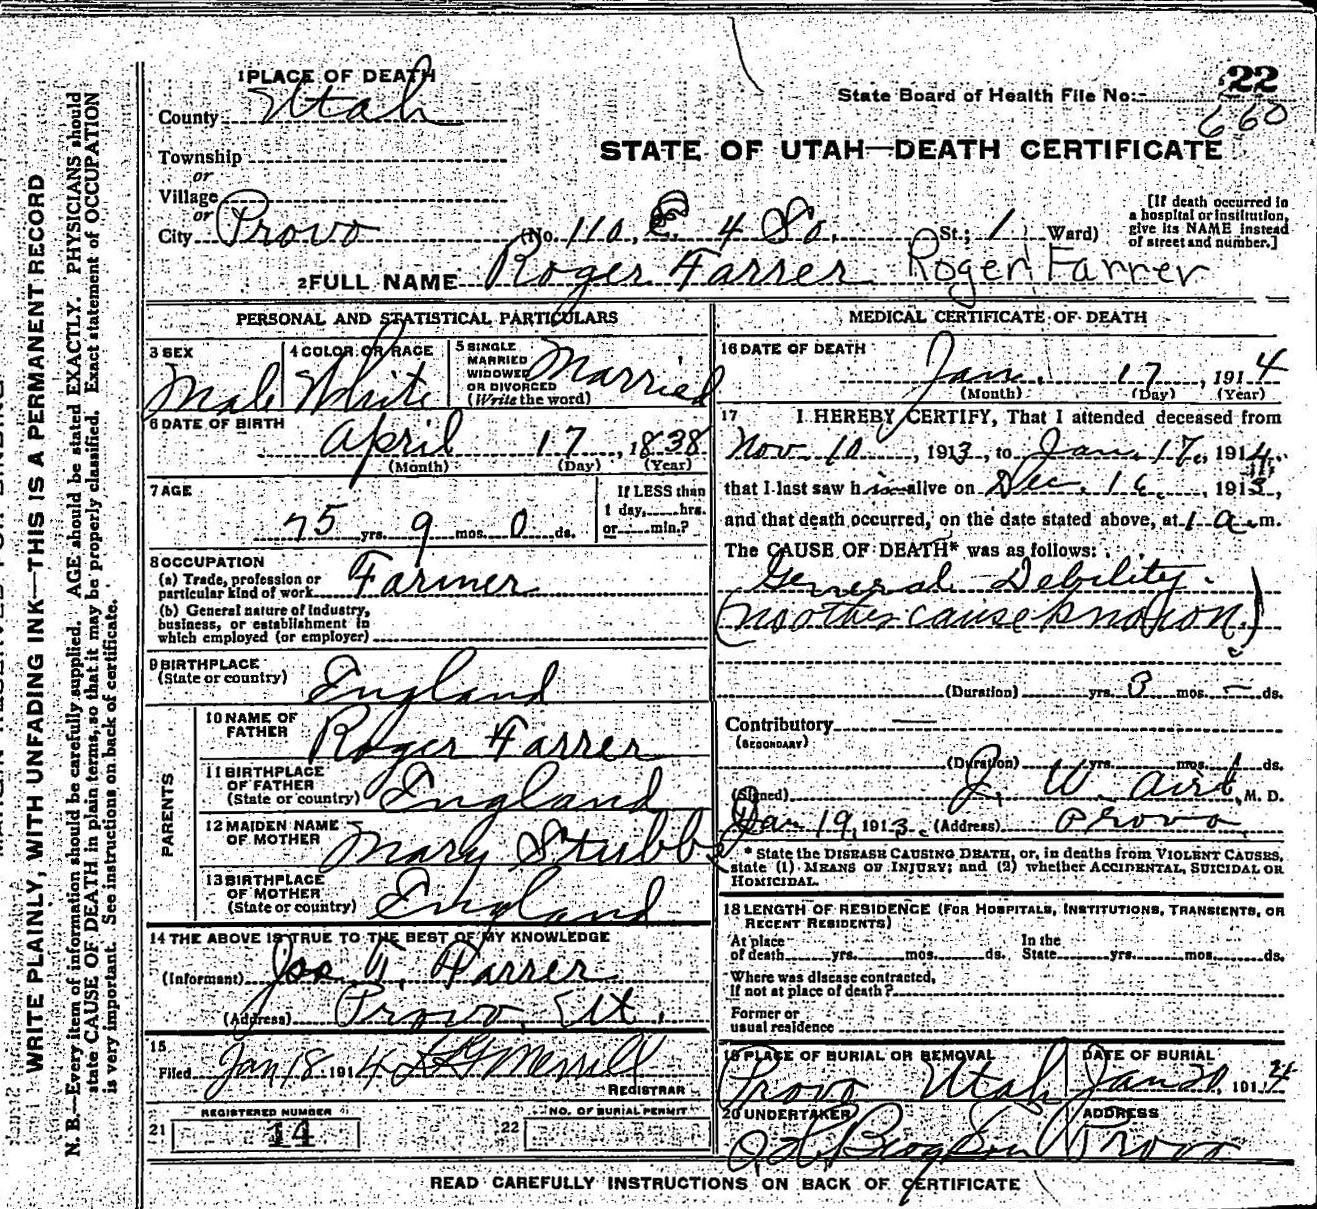 1 PLACE OF DEATH
County Utah
Township
or
Village
or
City Provo (No. 110. E. 4 So. St.; 1 Ward)
22
State Board of Health File No.
660
STATE OF UTAH—DEATH CERTIFICATE
[If death occurred in
a hospital or institution,
give its NAME instead
of street and number.]
2 FULL NAME Roger Farrer Roger Farrer
PERSONAL AND STATISTICAL PARTICULARS
3 SEX
Male
4 COLOR OR RACE
White
5 SINGLE
MARRIED
WIDOWED
OR DIVORCED
(Write the word)
Married
6 DATE OF BIRTH
April 17, 1838
(Month) (Day) (Year)
7 AGE
75 yrs. 9 mos. 0 ds.
If LESS than
1 day, hrs.
or min.?
8 OCCUPATION
(a) Trade, profession or
particular kind of work Farmer
(b) General nature of industry,
business, or establishment in
which employed (or employer)
9 BIRTHPLACE
(State or country) England
PARENTS
10 NAME OF
FATHER Roger Farrer
11 BIRTHPLACE
OF FATHER
(State or country) England
12 MAIDEN NAME
OF MOTHER Mary Stubbs
13 BIRTHPLACE
OF MOTHER
(State or country) England
14 THE ABOVE IS TRUE TO THE BEST OF MY KNOWLEDGE
(Informant) Farrer
(Address) Provo, Ut.
15
Filed Jan 18 1914 Merrill
REGISTRAR
REGISTERED NUMBER
21 14
NO. OF BURIAL PERMIT
22
MEDICAL CERTIFICATE OF DEATH
16 DATE OF DEATH
Jan. 17, 1914
(Month) (Day) (Year)
17 I HEREBY CERTIFY, That I attended deceased from
Nov. 10, 1913, to Jan. 17, 1914.
that I last saw him alive on Dec. 16, 1913,
and that death occurred, on the date stated above, at 1 a.m.
The CAUSE OF DEATH* was as follows:
General Debility.
(no other cause known.)
(Duration) yrs. 3 mos. – ds.
Contributory —
(SECONDARY)
(Duration) yrs. mos. ds.
(Signed) J. W. Aird, M. D.
Jan 19, 1913. (Address) Provo
* State the DISEASE CAUSING DEATH, or, in deaths from VIOLENT CAUSES,
state (1) MEANS OF INJURY; and (2) whether ACCIDENTAL, SUICIDAL OR
HOMICIDAL.
18 LENGTH OF RESIDENCE (FOR HOSPITALS, INSTITUTIONS, TRANSIENTS, OR
RECENT RESIDENTS)
At place
of death yrs. mos. ds.
In the
State yrs. mos. ds.
Where was disease contracted,
If not at place of death?
Former or
usual residence
19 PLACE OF BURIAL OR REMOVAL
Provo Utah
DATE OF BURIAL
Jan 20, 1914
20 UNDERTAKER
ADDRESS
Provo
READ CAREFULLY INSTRUCTIONS ON BACK OF CERTIFICATE
WRITE PLAINLY, WITH UNFADING INK—THIS IS A PERMANENT RECORD
N. B.—Every item of information should be carefully supplied. AGE should be stated EXACTLY. PHYSICIANS should
state CAUSE OF DEATH in plain terms, so that it may be properly classified. Exact statement of OCCUPATION
is very important. See instructions on back of certificate.